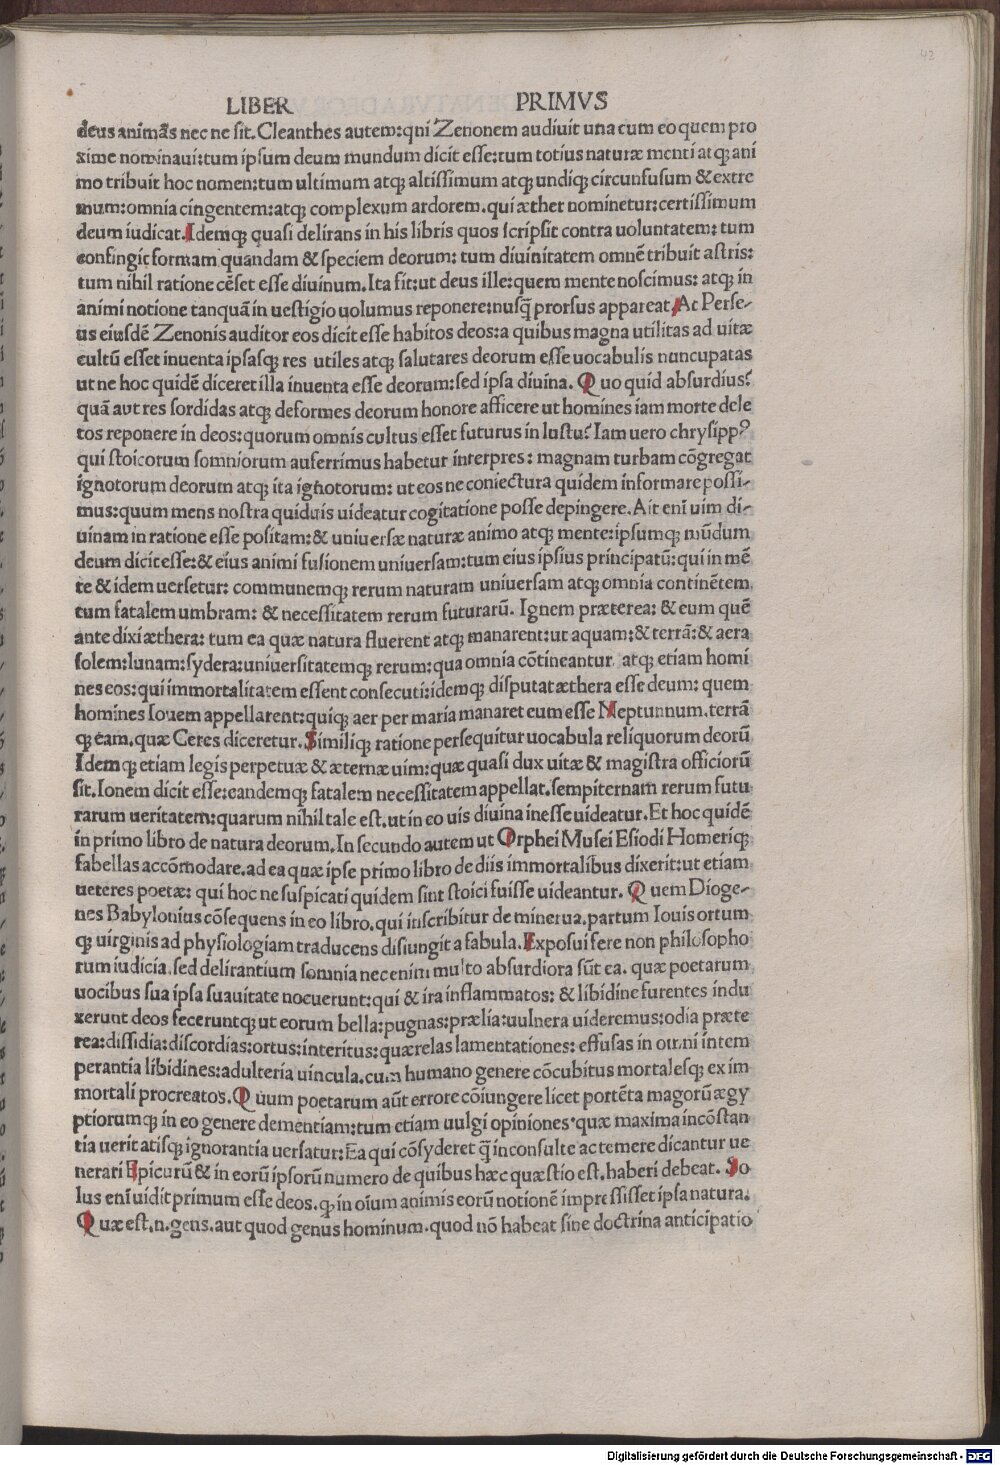 42
LIBER PRIMVS
deus animãs nec ne sit. Cleanthes autem: qni Zenonem audiuit una cum eo quem pro
xime nominaui: tum ipsum deum mundum dicit esse: tum totius naturæ menti atq; ani
mo tribuit hoc nomen: tum ultimum atq; altissimum atq; undiq; circunfusum & extre
mum: omnia cingentem: atq; complexum ardorem. qui æther nominetur: certissimum
deum iudicat. Idemq; quasi delirans in his libris quos scripsit contra uoluntatem: tum
confingit formam quandam & speciem deorum: tum diuinitatem omnē tribuit astris:
tum nihil ratione cēset esse diuinum. Ita fit: ut deus ille: quem mente noscimus: atq; in
animi notione tanquã in uestigio uolumus reponere: nusq̃ prorsus appareat. At Perse-
us eiusdē Zenonis auditor eos dicit esse habitos deos: a quibus magna utilitas ad uitæ
cultũ esset inuenta ipsasq; res utiles atq; salutares deorum esse uocabulis nuncupatas
ut ne hoc quidē diceret illa inuenta esse deorum: sed ipsa diuina. Quo quid absurdius?
quã aut res sordidas atq; deformes deorum honore afficere ut homines iam morte dele
tos reponere in deos: quorum omnis cultus esset futurus in lustu? Iam uero chrysippꝰ
qui stoicorum somniorum auferrimus habetur interpres: magnam turbam cõgregat
ignotorum deorum atq; ita ignotorum: ut eos ne coniectura quidem informare possi-
mus: quum mens nostra quiduis uideatur cogitatione posse depingere. Ait enĩ uim di-
uinam in ratione esse positam: & uniuersæ naturæ animo atq; mente: ipsumq; mũdum
deum dicit esse: & eius animi fusionem uniuersam: tum eius ipsius principatũ: qui in mē
te & idem uersetur: communemq; rerum naturam uniuersam atq; omnia continētem
tum fatalem umbram: & necessitatem rerum futurarũ. Ignem præterea: & eum quē
ante dixi æthera: tum ea quæ natura fluerent atq; manarent: ut aquam: & terrã: & aera
solem: lunam: sydera: uniuersitatemq; rerum: qua omnia cõtineantur. atq; etiam homi
nes eos: qui immortalitatem essent consecuti: idemq; disputat æthera esse deum: quem
homines Iouem appellarent: quiq; aer per maria manaret eum esse Neptunnum. terrã
q; eam. quæ Ceres diceretur. Similiq; ratione persequitur uocabula reliquorum deorũ
Idemq; etiam legis perpetuæ & æternæ uim: quæ quasi dux uitæ & magistra officiorũ
sit. Ionem dicit esse: eandemq; fatalem necessitatem appellat. sempiternam rerum futu
rarum ueritatem: quarum nihil tale est. ut in eo uis diuina inesse uideatur. Et hoc quidē
in primo libro de natura deorum. In secundo autem ut Orphei Musei Esiodi Homeriq;
fabellas accõmodare. ad ea quæ ipse primo libro de diis immortalibus dixerit: ut etiam
ueteres poetæ: qui hoc ne suspicati quidem sint stoici fuisse uideantur. Quem Dioge-
nes Babylonius cõsequens in eo libro. qui inscribitur de minerua. partum Iouis ortum
q; uirginis ad physiologiam traducens disiungit a fabula. Exposui fere non philosopho
rum iudicia. sed delirantium somnia nec enim multo absurdiora sũt ea. quæ poetarum
uocibus sua ipsa suauitate nocuerunt: qui & ira inflammatos: & libidine furentes indu
xerunt deos feceruntq; ut eorum bella: pugnas: prælia: uulnera uideremus: odia præte
rea: dissidia: discordias: ortus: interitus: quærelas lamentationes: effusas in omni intem
perantia libidines: adulteria uincula. cum humano genere cõcubitus mortalesq; ex im
mortali procreatos. Quum poetarum aũt errore cõiungere licet portēta magorũ ægy
ptiorumq; in eo genere dementiam: tum etiam uulgi opiniones· quæ maxima incõstan
tia ueritatisq; ignorantia uersatur: Ea qui cõsyderet q̃ inconsulte ac temere dicantur ue
nerari Epicurũ & in eorũ ipsorũ numero de quibus hæc quæstio est. haberi debeat. So
lus enĩ uidit primum esse deos. q; in oĩum animis eorũ notionē impressisset ipsa natura.
Quæ est .n. gens. aut quod genus hominum. quod nõ habeat sine doctrina anticipatio
Digitalisierung gefördert durch die Deutsche Forschungsgemeinschaft - DFG